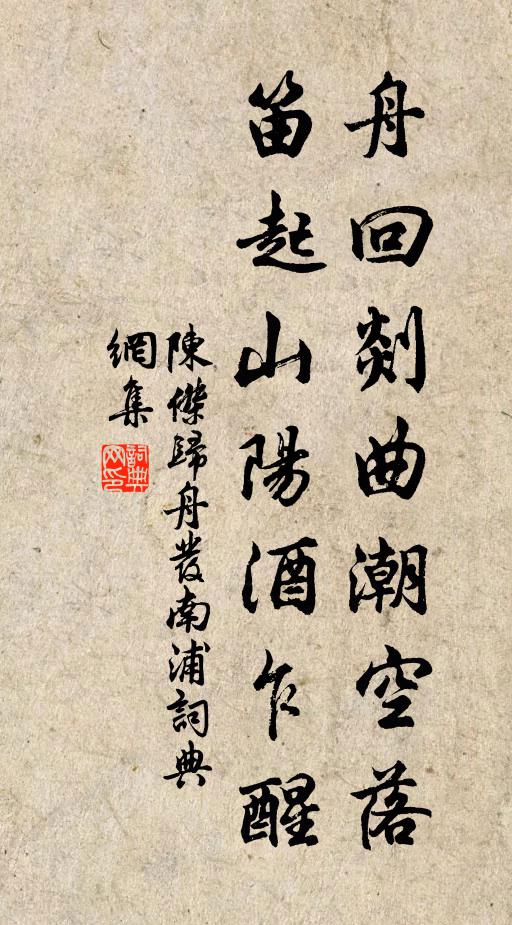 舟回剡曲潮空落
笛起山陽酒乍醒
陳傑歸舟發南浦詞典
網集
詞典
网印